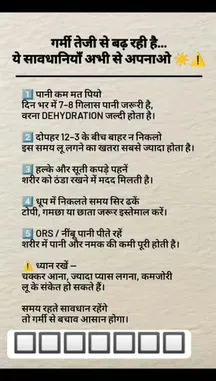 गर्मी तेजी से बढ़ रही है...
ये सावधानियाँ अभी से अपनाओ ☀️⚠️
1️⃣ पानी कम मत पियो
दिन भर में 7–8 गिलास पानी जरूरी है,
वरना DEHYDRATION जल्दी होता है।
2️⃣ दोपहर 12–3 के बीच बाहर न निकलो
इस समय लू लगने का खतरा सबसे ज्यादा होता है।
3️⃣ हल्के और सूती कपड़े पहनें
शरीर को ठंडा रखने में मदद मिलती है।
4️⃣ धूप में निकलते समय सिर ढकें
टोपी, गमछा या छाता जरूर इस्तेमाल करें।
5️⃣ ORS / नींबू पानी पीते रहें
शरीर में पानी और नमक की कमी पूरी होती है।
⚠️ ध्यान रखें –
चक्कर आना, ज्यादा प्यास लगना, कमजोरी
लू के संकेत हो सकते हैं।
समय रहते सावधान रहेंगे
तो गर्मी से बचाव आसान होगा।